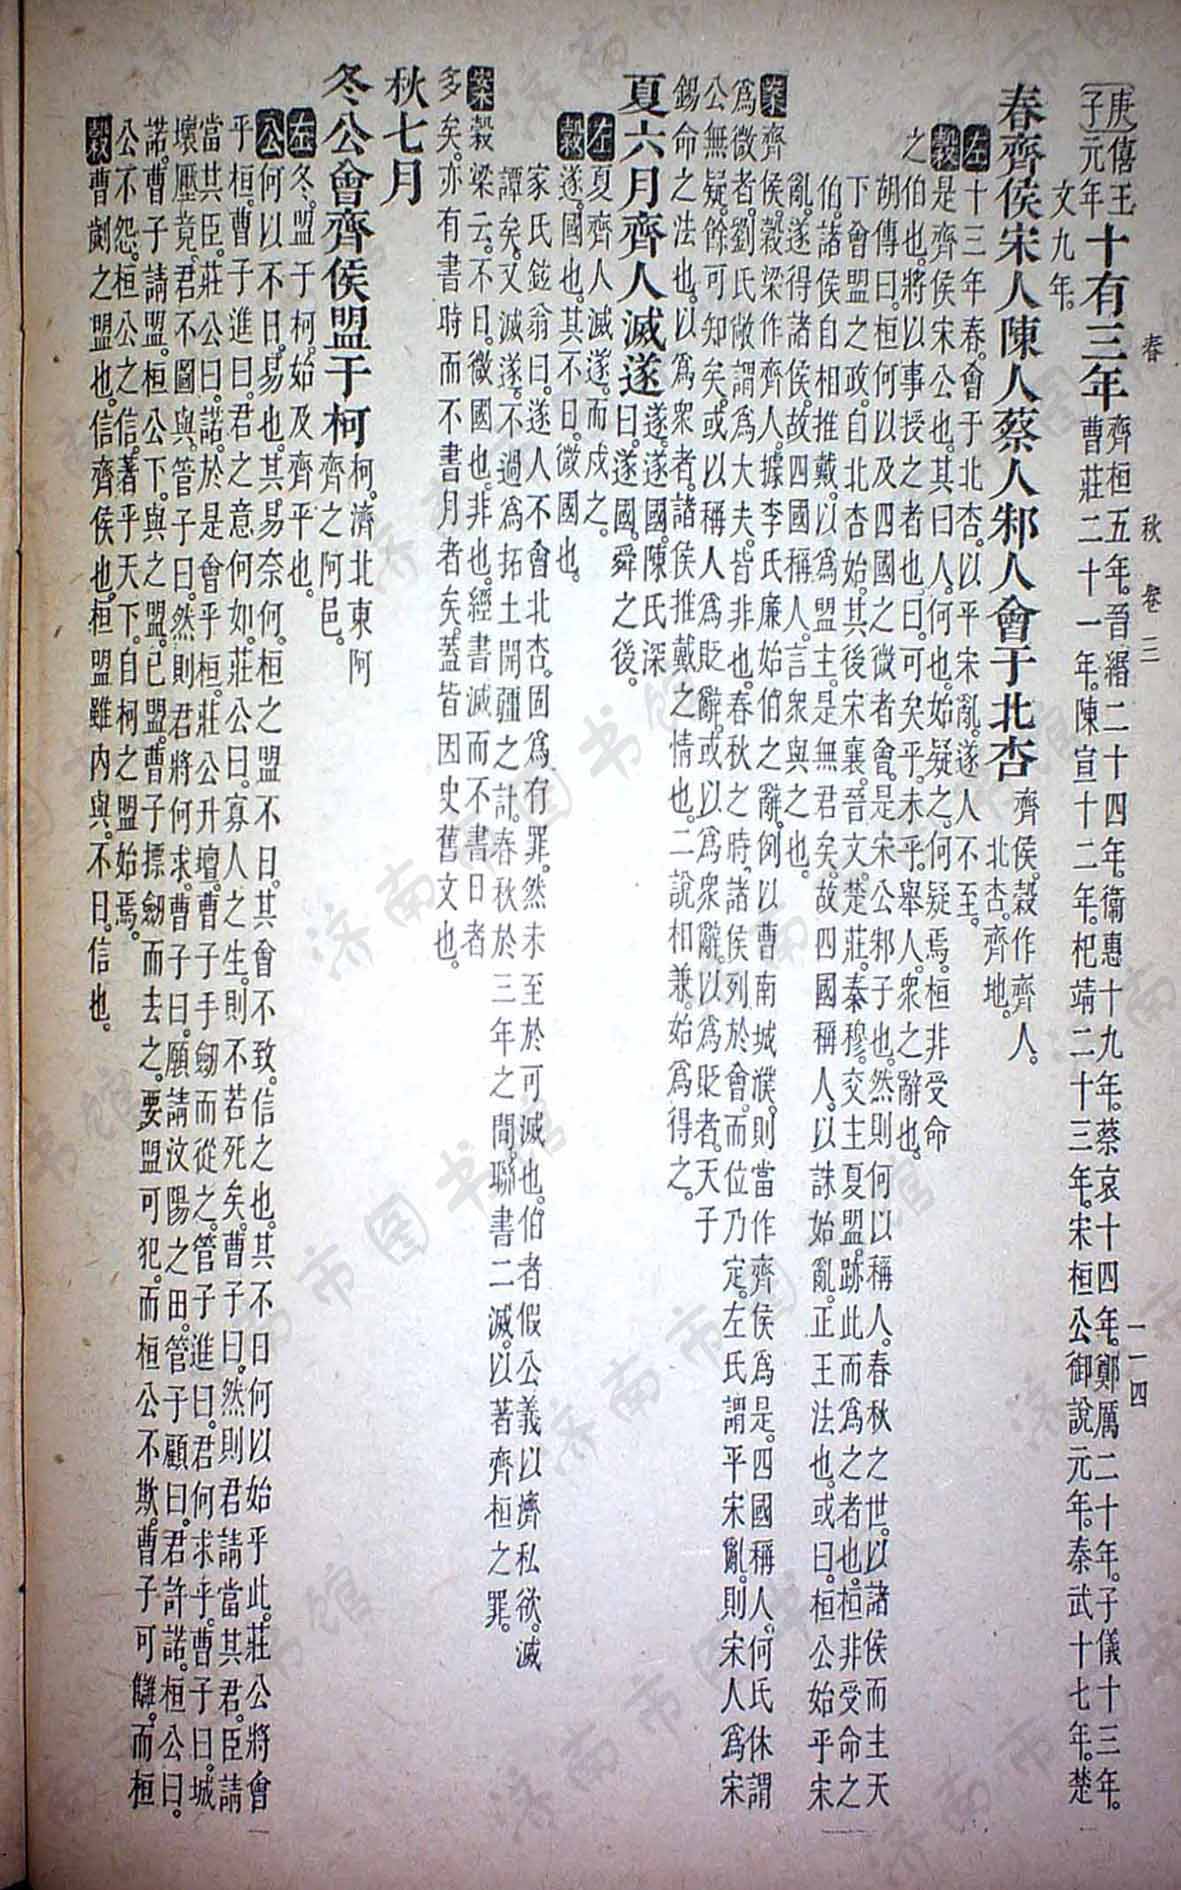 春 秋 卷三 一一四
〔庚子〕僖王元年十有三年 齊桓五年。晉緡二十四年。衞惠十九年。蔡哀十四年。鄭厲二十年。子儀十三年。
曹莊二十一年。陳宣十二年。杞靖二十三年。宋桓公御說元年。秦武十七年。楚
文九年。
春齊侯宋人陳人蔡人邾人會于北杏 齊侯。穀作齊人。
北杏。齊地。
左 十三年春。會于北杏。以平宋亂。遂人不至。
穀 是齊侯宋公也。其曰人。何也。始疑之。何疑焉。桓非受命
之伯也。將以事授之者也。曰。可矣乎。未乎。舉人。衆之辭也。
胡傳曰。桓何以及四國之微者會。是宋公邾子也。然則何以稱人。春秋之世。以諸侯而主天
下會盟之政。自北杏始。其後宋襄。晉文。楚莊。秦穆。交主夏盟。跡此而爲之者也。桓非受命之
伯。諸侯自相推戴。以爲盟主。是無君矣。故四國稱人。以誅始亂。正王法也。或曰。桓公始平宋
亂。遂得諸侯。故四國稱人。言衆與之也。
案 齊侯。穀梁作齊人。據李氏廉始伯之辭。例以曹南城濮。則當作齊侯爲是。四國稱人。何氏休謂
爲微者。劉氏敞謂爲大夫。皆非也。春秋之時。諸侯列於會。而位乃定。左氏謂平宋亂。則宋人爲宋
公無疑。餘可知矣。或以稱人爲貶辭。或以爲衆辭。以爲貶者。天子
錫命之法也。以爲衆者。諸侯推戴之情也。二說相兼。始爲得之。
夏六月齊人滅遂 遂。遂國。陳氏深
曰。遂國。舜之後。
左 夏齊人滅遂。而戍之。
穀 遂。國也。其不日。微國也。
家氏鉉翁曰。遂人不會北杏。固爲有罪。然未至於可滅也。伯者假公義以濟私欲。滅
譚矣。又滅遂。不過爲拓土開疆之計。春秋於三年之間。聯書二滅。以著齊桓之罪。
案 穀梁云。不日。微國也。非也。經書滅而不書日者
多矣。亦有書時而不書月者矣。蓋皆因史舊文也。
秋七月
冬公會齊侯盟于柯 柯。濟北東阿
齊之阿邑。
左 冬。盟于柯。始及齊平也。
公 何以不日。易也。其易奈何。桓之盟不日。其會不致。信之也。其不日何以始乎此。莊公將會
乎桓。曹子進曰。君之意何如。莊公曰。寡人之生。則不若死矣。曹子曰。然則君請當其君。臣請
當其臣。莊公曰。諾。於是會乎桓。莊公升壇。曹子手劒而從之。管子進曰。君何求乎。曹子曰。城
壞壓竟。君不圖與。管子曰。然則君將何求。曹子曰。願請汶陽之田。管子顧曰。君許諾。桓公曰。
諾。曹子請盟。桓公下。與之盟。已盟。曹子摽劒而去之。要盟可犯。而桓公不欺。曹子可讎。而桓
公不怨。桓公之信。著乎天下。自柯之盟始焉。
穀 曹劌之盟也。信齊侯也。桓盟雖內與。不日。信也。